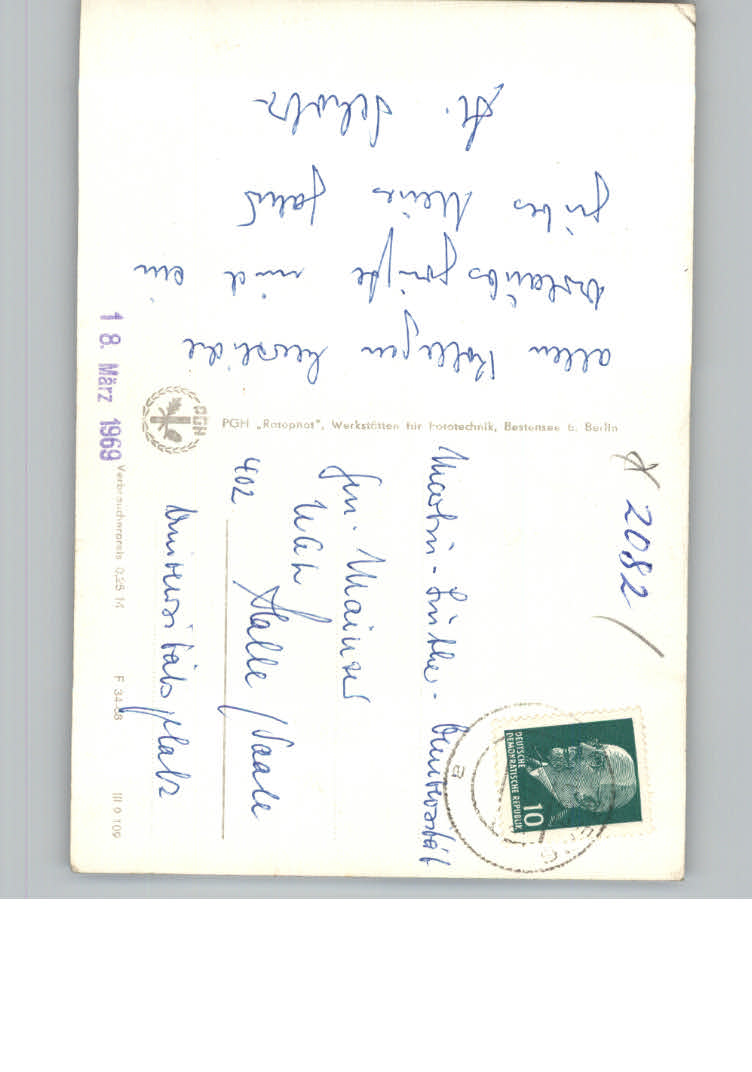 allen Kollegen herzliche
Urlaubsgrüße und ein
frohes
H. Scholz
18. März 1969
PGH
PGH „Rotophot", Werkstätten für Fototechnik, Bestensee b. Berlin
Verbraucherpreis 0,25 M
F 34-68
III 9 109
2082
Martin-Luther-Universität
402 Halle / Saale
Universitätsplatz
DEUTSCHE
DEMOKRATISCHE REPUBLIK
10
a